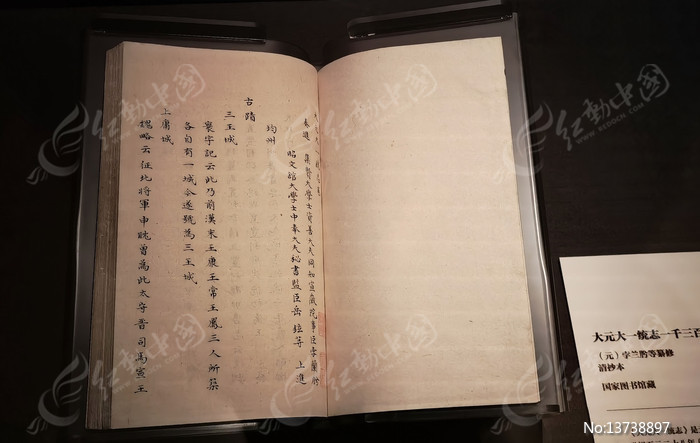 集賢大學士資善大夫同知宣徽院事臣孛蘭肹
昭文館大學士中奉大夫秘書監臣岳鉉等上進
均州
古蹟
三王城
寰宇記云此乃前漢末王康王常王鳳三人所築
各自有一城今遂號為三王城
上庸城
魏略云征北將軍申耽曾為此太守晉司馬宣王
大元大一统志一千三百
（元）孛兰肹等纂修
清抄本
国家图书馆藏
红动中国
WWW.REDOCN.COM
No:13738897